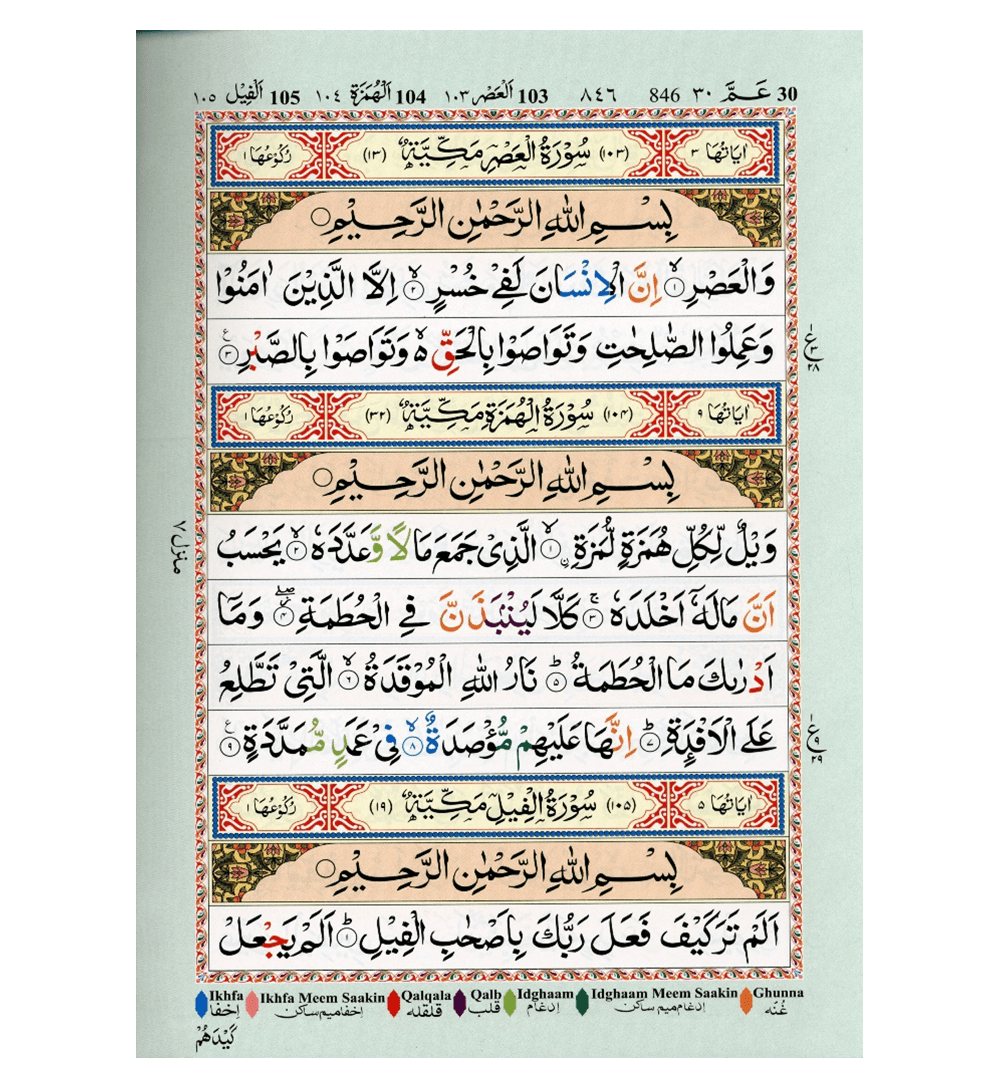 30 عَـمَّ ٣٠ 846 ٨٤٦ 103 اَلْعَصْر ١٠٣ 104 اَلْهُمَزَة ١٠٤ 105 اَلْفِيْل ١٠٥
اٰيَاتُهَا ٣ (١٠٣) سُوْرَةُ الْعَصْرِ مَكِّيَّةٌ (١٣) رُكُوْعُهَا ١
بِسْمِ اللّٰهِ الرَّحْمٰنِ الرَّحِيْمِ ○
وَالْعَصْرِ ۙ﴿١﴾ اِنَّ الْاِنْسَانَ لَفِيْ خُسْرٍ ۙ﴿٢﴾ اِلَّا الَّذِيْنَ اٰمَنُوْا
وَعَمِلُوا الصّٰلِحٰتِ وَتَوَاصَوْا بِالْحَقِّ ۙ وَتَوَاصَوْا بِالصَّبْرِ ﴿٣﴾ ع
ع ١ ٣ ٢٨
اٰيَاتُهَا ٩ (١٠٤) سُوْرَةُ الْهُمَزَةِ مَكِّيَّةٌ (٣٢) رُكُوْعُهَا ١
بِسْمِ اللّٰهِ الرَّحْمٰنِ الرَّحِيْمِ ○
وَيْلٌ لِّكُلِّ هُمَزَةٍ لُّمَزَةِ ۙ﴿١﴾ الَّذِيْ جَمَعَ مَا لًا وَّعَدَّدَهٗ ۙ﴿٢﴾ يَحْسَبُ
مانزل ٧
اَنَّ مَالَهٗٓ اَخْلَدَهٗ ۚ﴿٣﴾ كَلَّا لَيُنْۢبَذَنَّ فِي الْحُطَمَةِ ۖ﴿٤﴾ وَمَآ
اَدْرٰىكَ مَا الْحُطَمَةُ ؕ﴿٥﴾ نَارُ اللّٰهِ الْمُوْقَدَةُ ۙ﴿٦﴾ الَّتِيْ تَطَّلِعُ
عَلَى الْاَفْـِٕدَةِ ؕ﴿٧﴾ اِنَّهَا عَلَيْهِمْ مُّؤْصَدَةٌ ۙ﴿٨﴾ فِيْ عَمَدٍ مُّمَدَّدَةٍ ﴿٩﴾ ع
ع ١ ٩ ٢٩
اٰيَاتُهَا ٥ (١٠٥) سُوْرَةُ الْفِيْلِ مَكِّيَّةٌ (١٩) رُكُوْعُهَا ١
بِسْمِ اللّٰهِ الرَّحْمٰنِ الرَّحِيْمِ ○
اَلَمْ تَرَ كَيْفَ فَعَلَ رَبُّكَ بِاَصْحٰبِ الْفِيْلِ ؕ﴿١﴾ اَلَمْ يَجْعَلْ
Ikhfa Ikhfa Meem Saakin Qalqala Qalb Idghaam Idghaam Meem Saakin Ghunna
اِخفا اِخفا میم ساکن قلقله قلب اِدغام اِدغام میم ساکن غُنّه
كَيْدَهُمْ